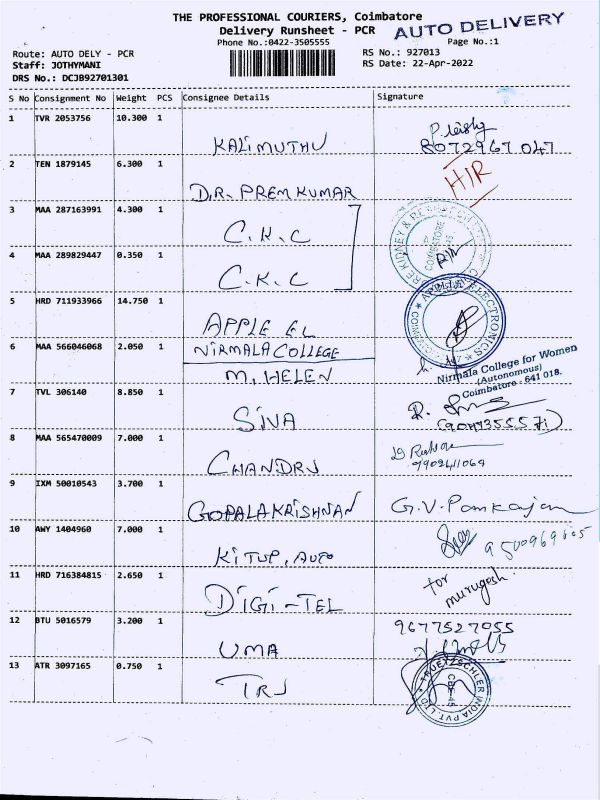 THE PROFESSIONAL COURIERS, Coimbatore
AUTO DELIVERY
Delivery Runsheet - PCR
Phone No.:0422-3505555
Page No.:1
Route: AUTO DELY - PCR
RS No.: 927013
Staff: JOTHYMANI
RS Date: 22-Apr-2022
DRS No.: DCJB92701301
S No Consignment No Weight PCS Consignee Details Signature
1 TVR 2053756 10.300 1
KALIMUTHU
8072967047
2 TEN 1879145 6.300 1
H/R
D.R. PREMKUMAR
3 MAA 287163991 4.300 1
C.K.C
COIMBATORE
4 MAA 289829447 0.350 1
C.K.C
5 HRD 711933966 14.750 1
APPLE EL
APPLE ELECTRONICS
6 MAA 566046068 2.050 1
NIRMALA COLLEGE
M, HELEN
Nirmala College for Women
(Autonomous)
Coimbatore - 641 018.
7 TVL 306140 8.850 1
SIVA
8 MAA 565470009 7.000 1
CHANDRU
9 IXM 50010543 3.700 1
GOPALAKRISHNAN
G.V. Pankajam
10 AWY 1404960 7.000 1
KITUP, AUTO
11 HRD 716384815 2.650 1
DIGI-TEL
for
murugesh
12 BTU 5016579 3.200 1
UMA
9677527055
13 ATR 3097165 0.750 1
TRJ
TRUETZSCHLER INDIA PVT. LTD